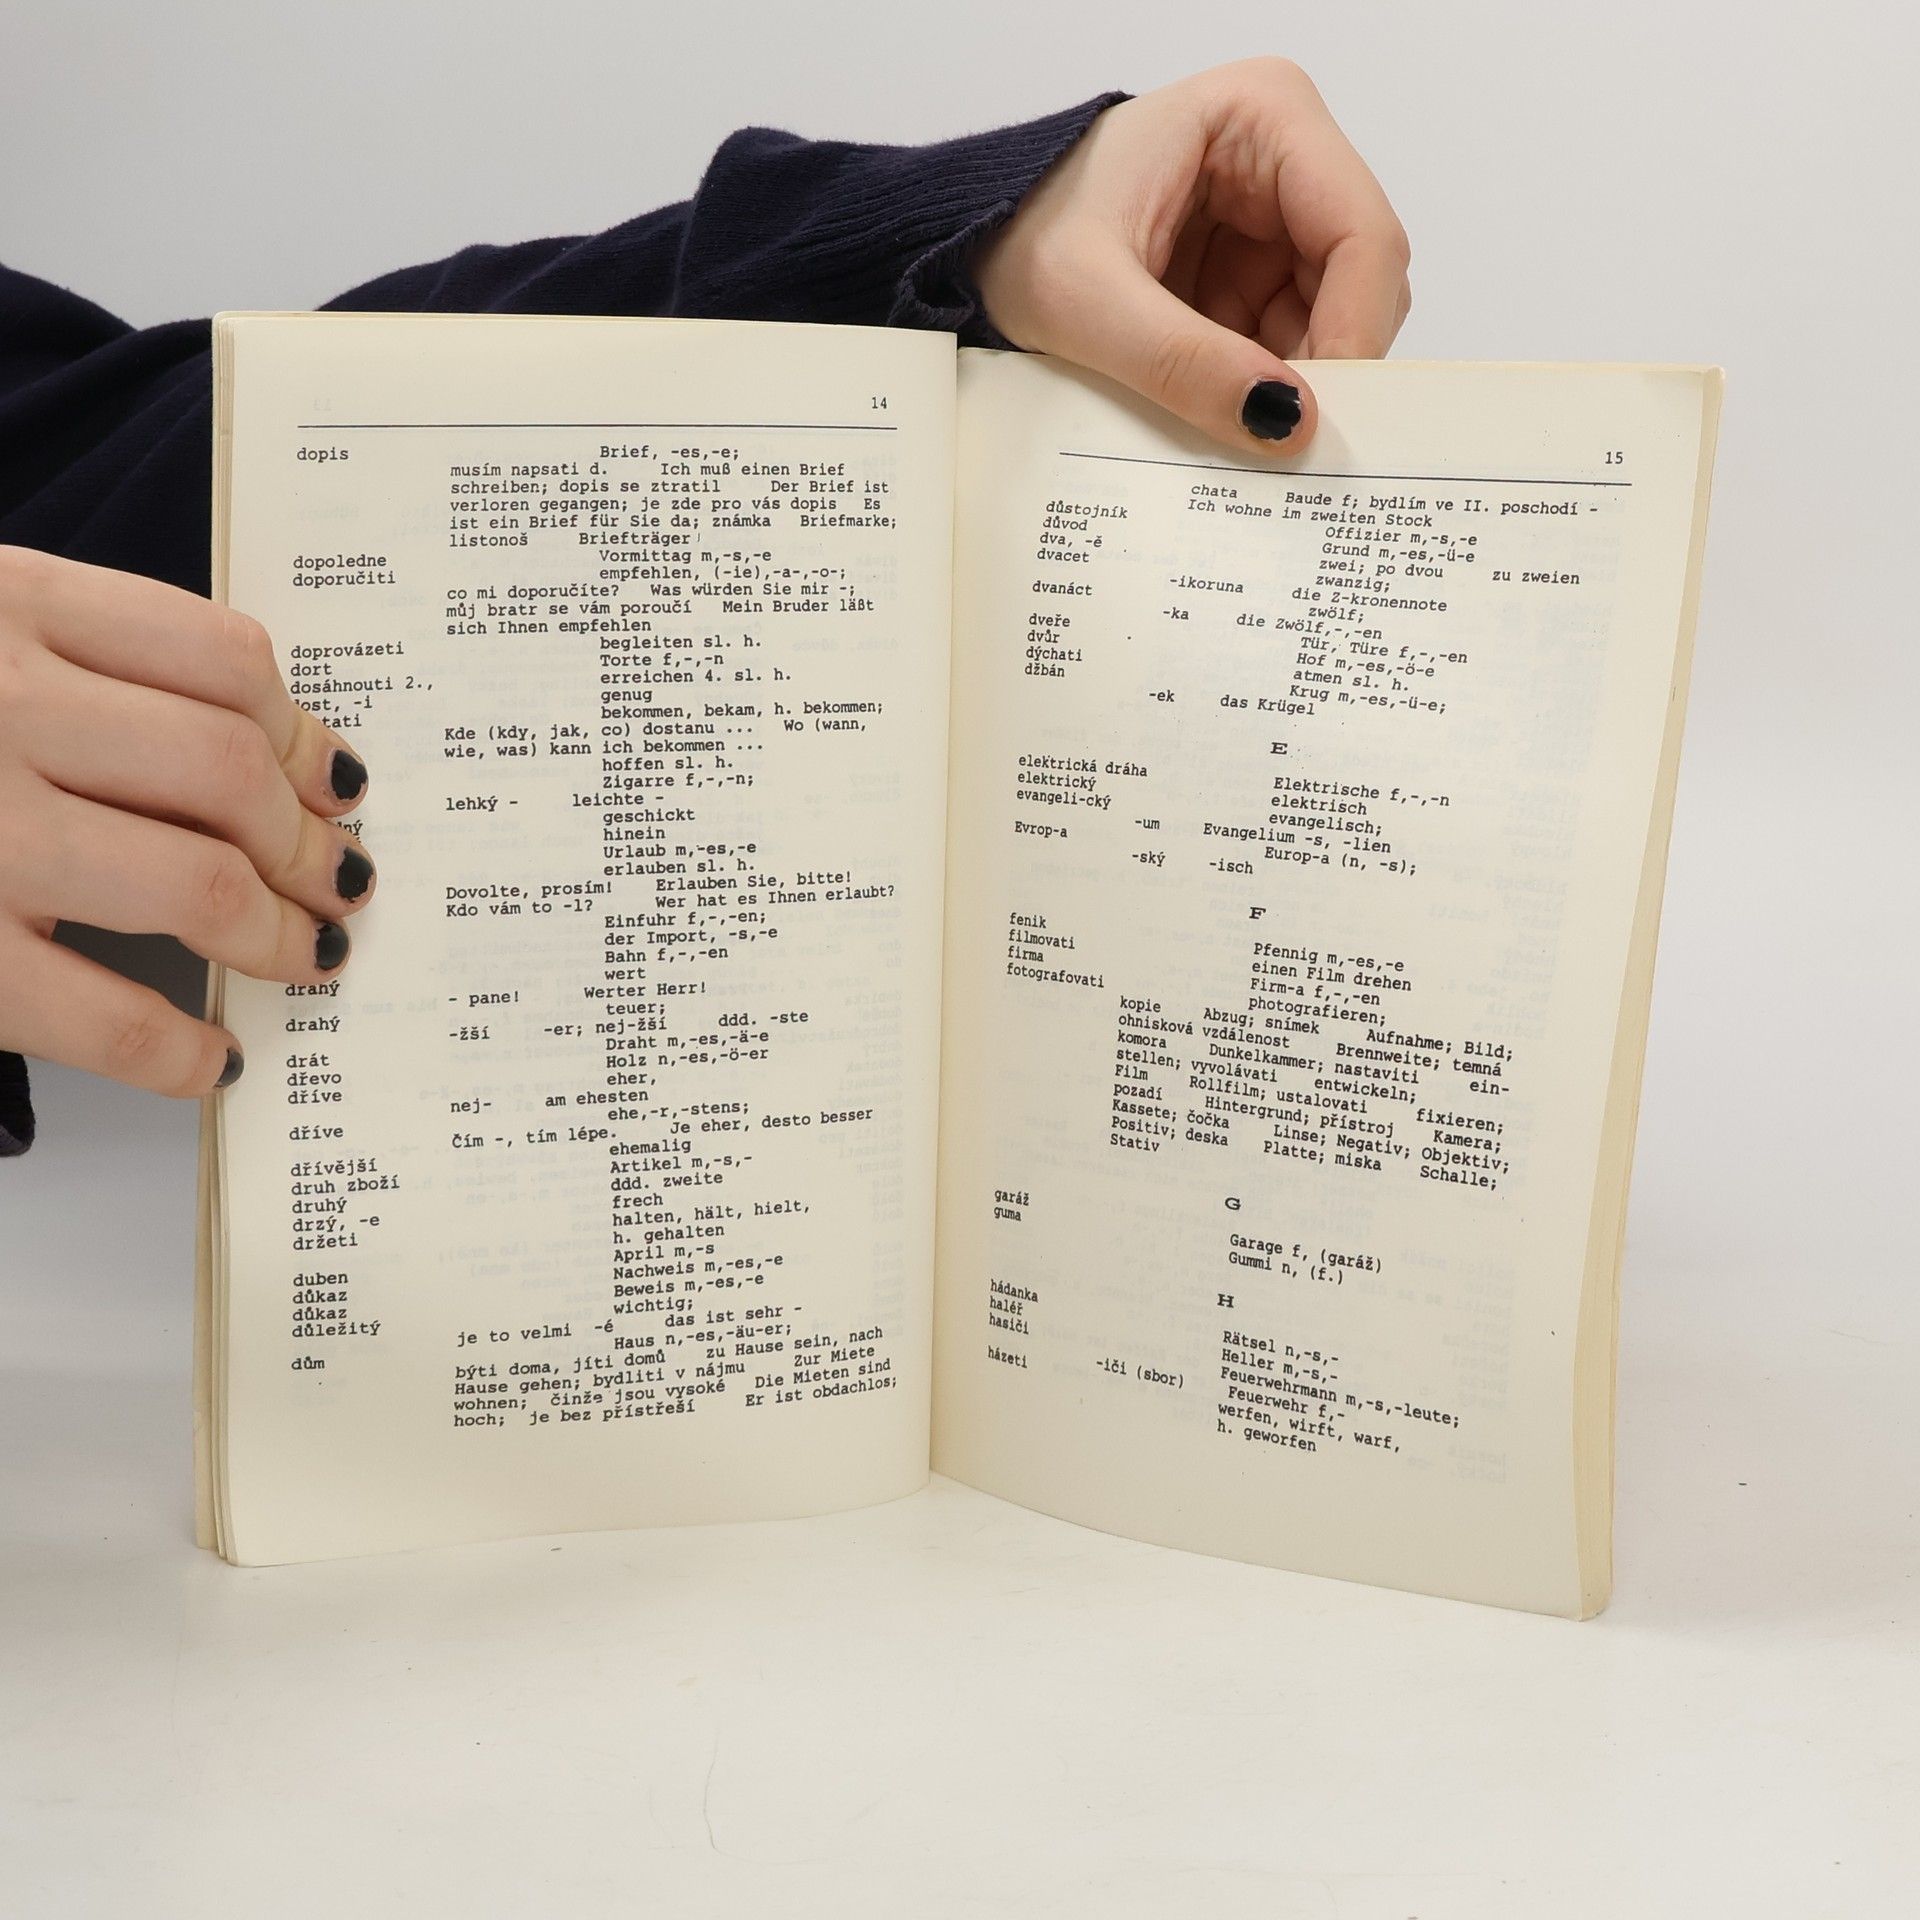 14
dopis Brief, -es,-e;
musím napsati d. Ich muß einen Brief
schreiben; dopis se ztratil Der Brief ist
verloren gegangen; je zde pro vás dopis Es
ist ein Brief für Sie da; známka Briefmarke;
listonoš Briefträger
dopoledne Vormittag m,-s,-e
doporučiti empfehlen, (-ie),-a-,-o-;
co mi doporučíte? Was würden Sie mir -;
můj bratr se vám poroučí Mein Bruder läßt
sich Ihnen empfehlen
doprovázeti begleiten sl. h.
dort Torte f,-,-n
dosáhnouti 2., erreichen 4. sl. h.
-i genug
bekommen, bekam, h. bekommen;
Kde (kdy, jak, co) dostanu ... Wo (wann,
wie, was) kann ich bekommen ...
hoffen sl. h.
Zigarre f,-,-n;
lehký - leichte -
geschickt
hinein
Urlaub m,-es,-e
erlauben sl. h.
Dovolte, prosím! Erlauben Sie, bitte!
Kdo vám to -l? Wer hat es Ihnen erlaubt?
Einfuhr f,-,-en;
der Import, -s,-e
Bahn f,-,-en
wert
drahý - pane! Werter Herr!
drahý teuer;
-žší -er; nej-žší ddd. -ste
drát Draht m,-es,-ä-e
dřevo Holz n,-es,-ö-er
dříve eher,
nej- am ehesten
dříve ehe,-r,-stens;
Čím -, tím lépe. Je eher, desto besser
dřívější ehemalig
druh zboží Artikel m,-s,-
druhý ddd. zweite
drzý, -e frech
držeti halten, hält, hielt,
h. gehalten
duben April m,-s
důkaz Nachweis m,-es,-e
důkaz Beweis m,-es,-e
důležitý wichtig;
je to velmi -é das ist sehr -
dům Haus n,-es,-äu-er;
býti doma, jíti domů zu Hause sein, nach
Hause gehen; bydliti v nájmu Zur Miete
wohnen; činže jsou vysoké Die Mieten sind
hoch; je bez přístřeší Er ist obdachlos;
15
chata Baude f; bydlím ve II. poschodí -
Ich wohne im zweiten Stock
důstojník Offizier m,-s,-e
důvod Grund m,-es,-ü-e
dva, -ě zwei; po dvou zu zweien
dvacet zwanzig;
-ikoruna die Z-kronennote
dvanáct zwölf;
-ka die Zwölf,-,-en
dveře Tür, Türe f,-,-en
dvůr Hof m,-es,-ö-e
dýchati atmen sl. h.
džbán Krug m,-es,-ü-e;
-ek das Krügel
E
elektrická dráha Elektrische f,-,-n
elektrický elektrisch
evangeli-cký evangelisch;
-um Evangelium -s, -lien
Evrop-a Europ-a (n, -s);
-ský -isch
F
fenik Pfennig m,-es,-e
filmovati einen Film drehen
firma Firm-a f,-,-en
fotografovati photografieren;
kopie Abzug; snímek Aufnahme; Bild;
ohnisková vzdálenost Brennweite; temná
komora Dunkelkammer; nastaviti ein-
stellen; vyvolávati entwickeln;
Film Rollfilm; ustalovati fixieren;
pozadí Hintergrund; přístroj Kamera;
Kassete; čočka Linse; Negativ; Objektiv;
Positiv; deska Platte; miska Schalle;
Stativ
G
garáž Garage f, (garáž)
guma Gummi n, (f.)
H
hádanka Rätsel n,-s,-
haléř Heller m,-s,-
hasiči Feuerwehrmann m,-s,-leute;
-iči (sbor) Feuerwehr f,-
házeti werfen, wirft, warf,
h. geworfen